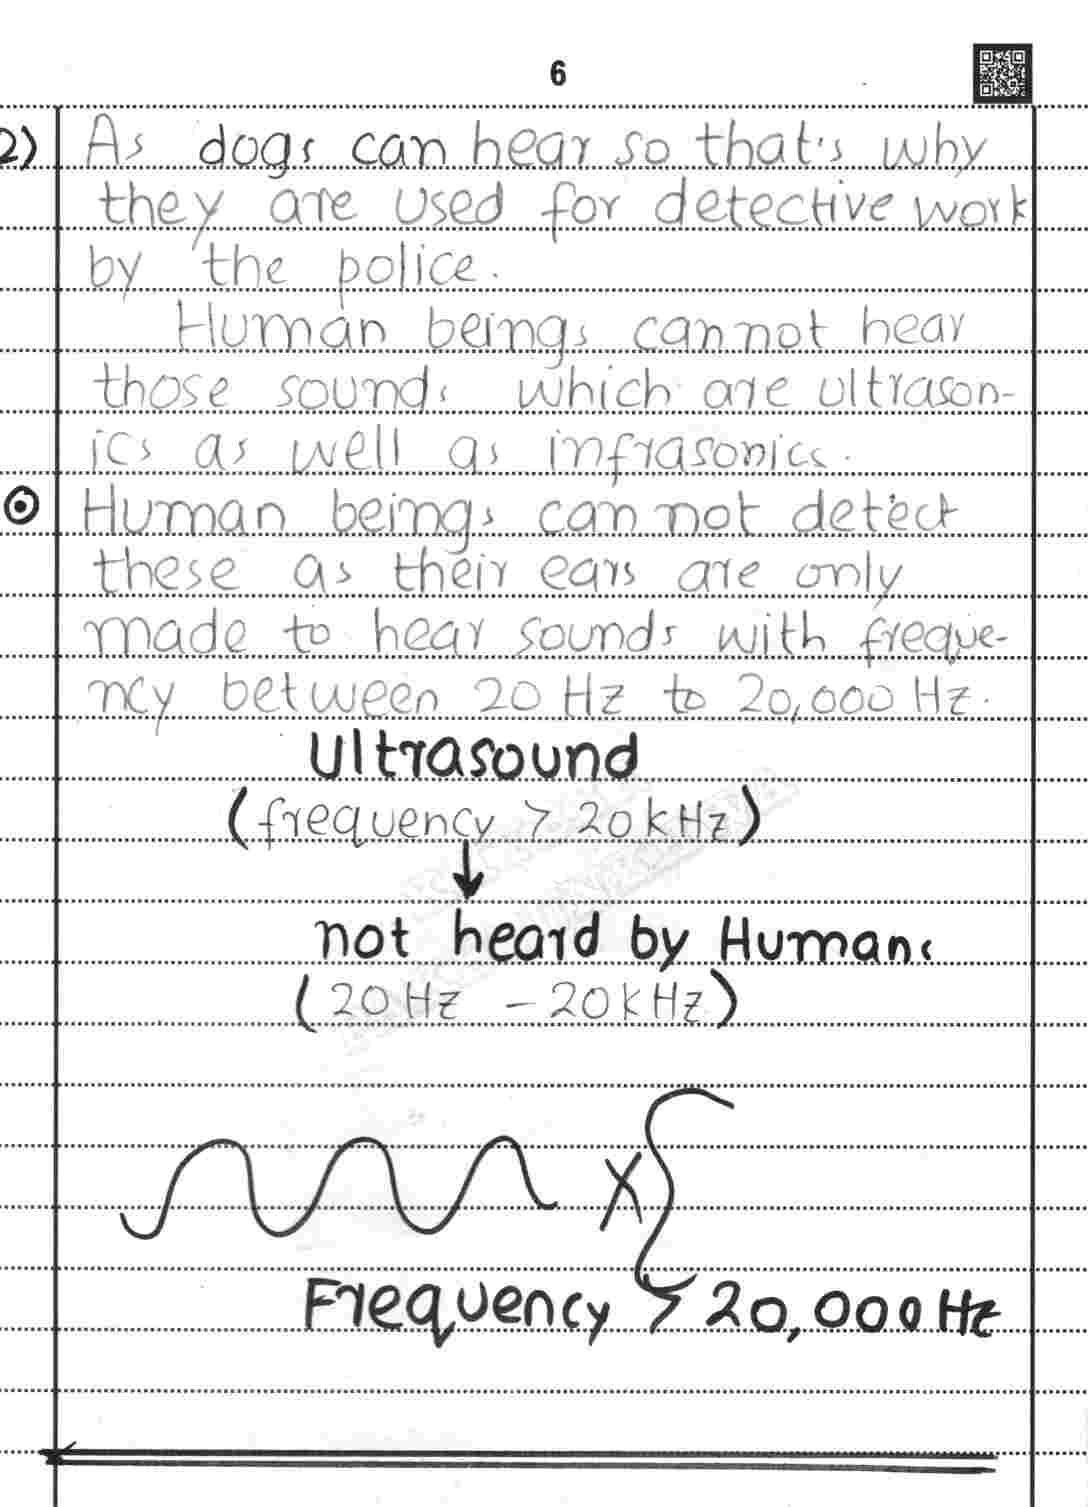 6
2) As dogs can hear so that's why
they are used for detective work
by the police.
Human beings cannot hear
those sounds which are ultrason-
ics as well as infrasonics.
Human beings can not detect
these as their ears are only
made to hear sounds with freque-
ncy between 20 Hz to 20,000 Hz.
Ultrasound
(frequency > 20kHz)
↓
not heard by Humans
(20Hz - 20kHz)
X
Frequency > 20,000 Hz